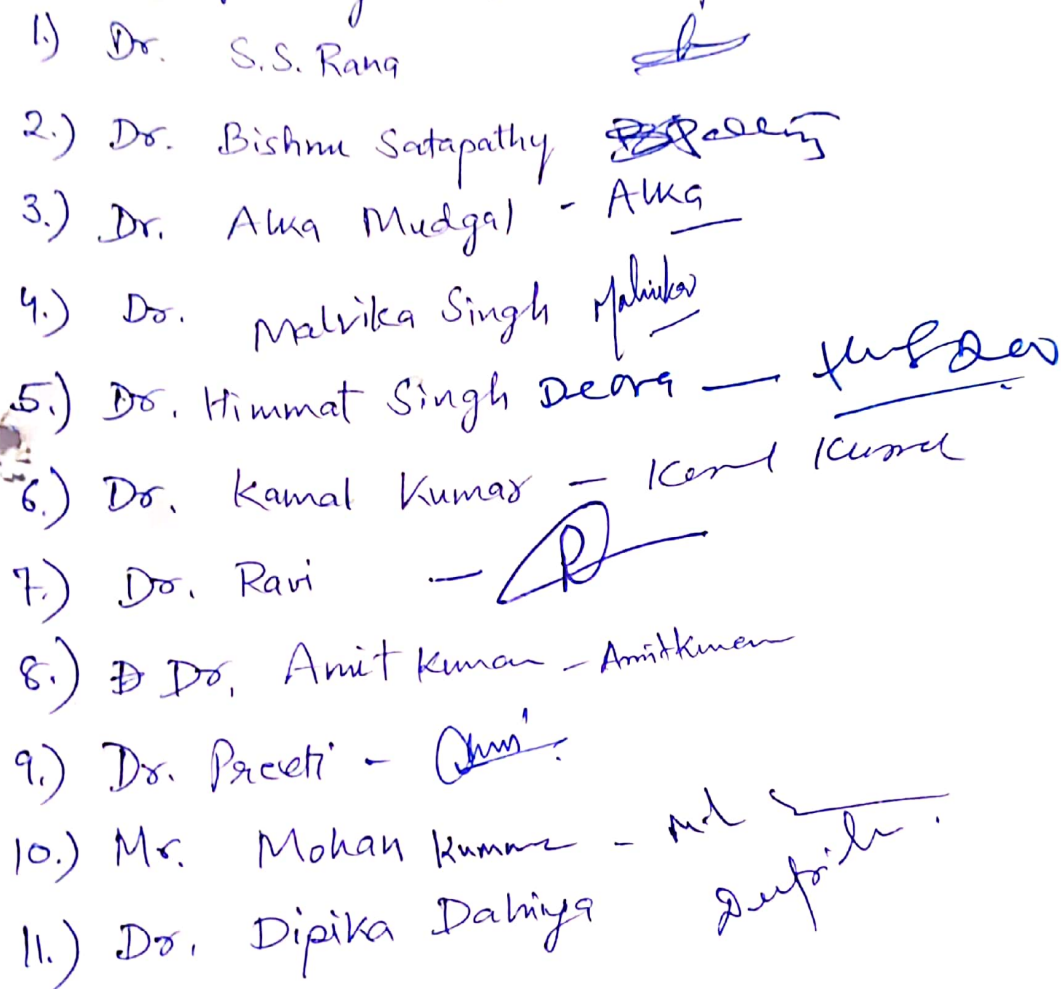 1.) Dr. S.S. Rana
2.) Dr. Bishnu Satapathy
3.) Dr. Alka Mudgal - Alka
4.) Dr. Malvika Singh Malvika
5.) Dr. Himmat Singh Deora —
6.) Dr. Kamal Kumar - Kamal Kumar
7.) Dr. Ravi -
8.) D Dr. Amit Kumar - Amitkumar
9.) Dr. Preeti -
10.) Mr. Mohan Kumar -
11.) Dr. Dipika Dahiya